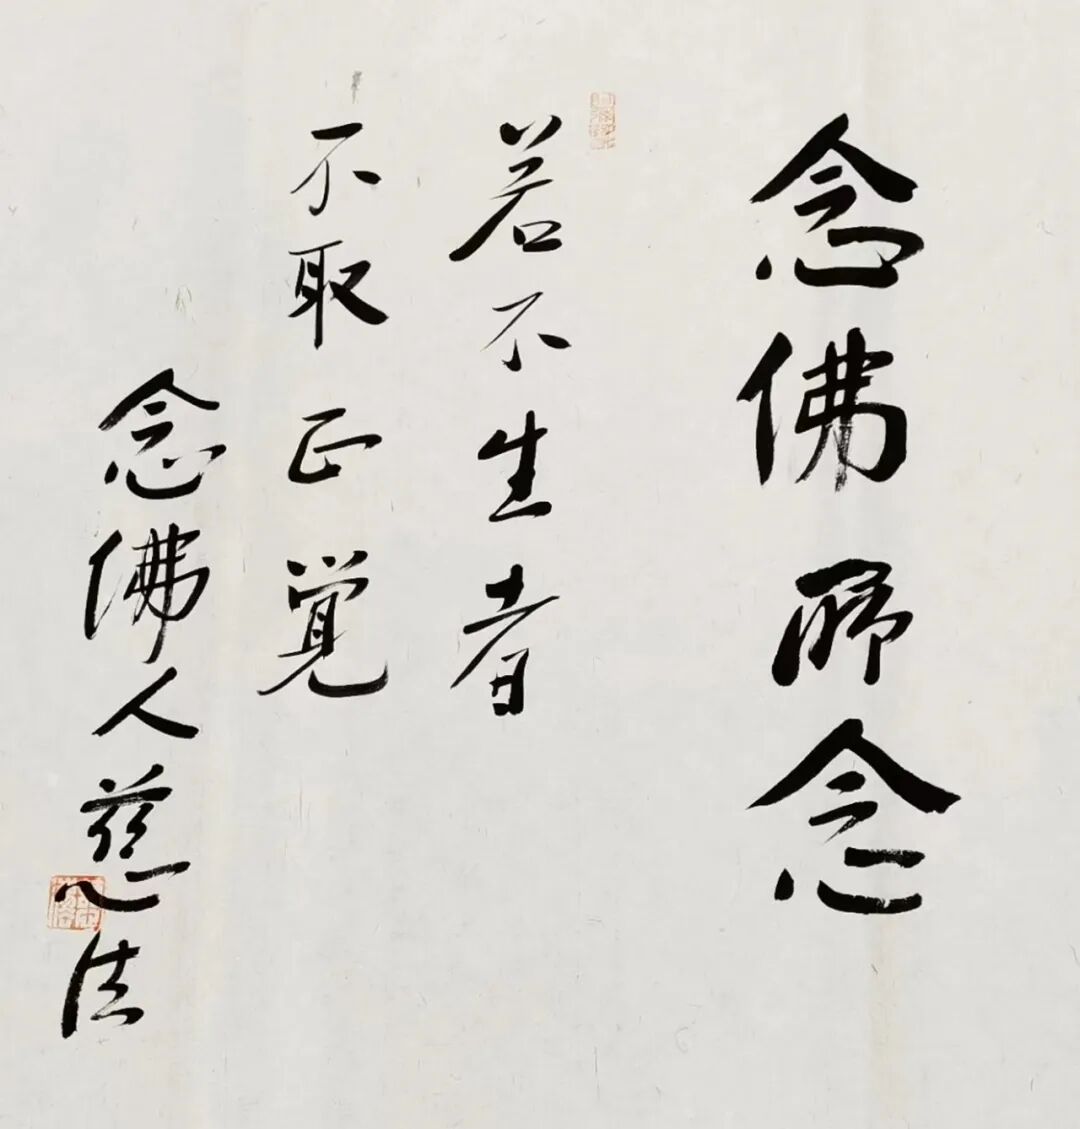 念佛所念
若不生者
不取正覚
念佛人慈法